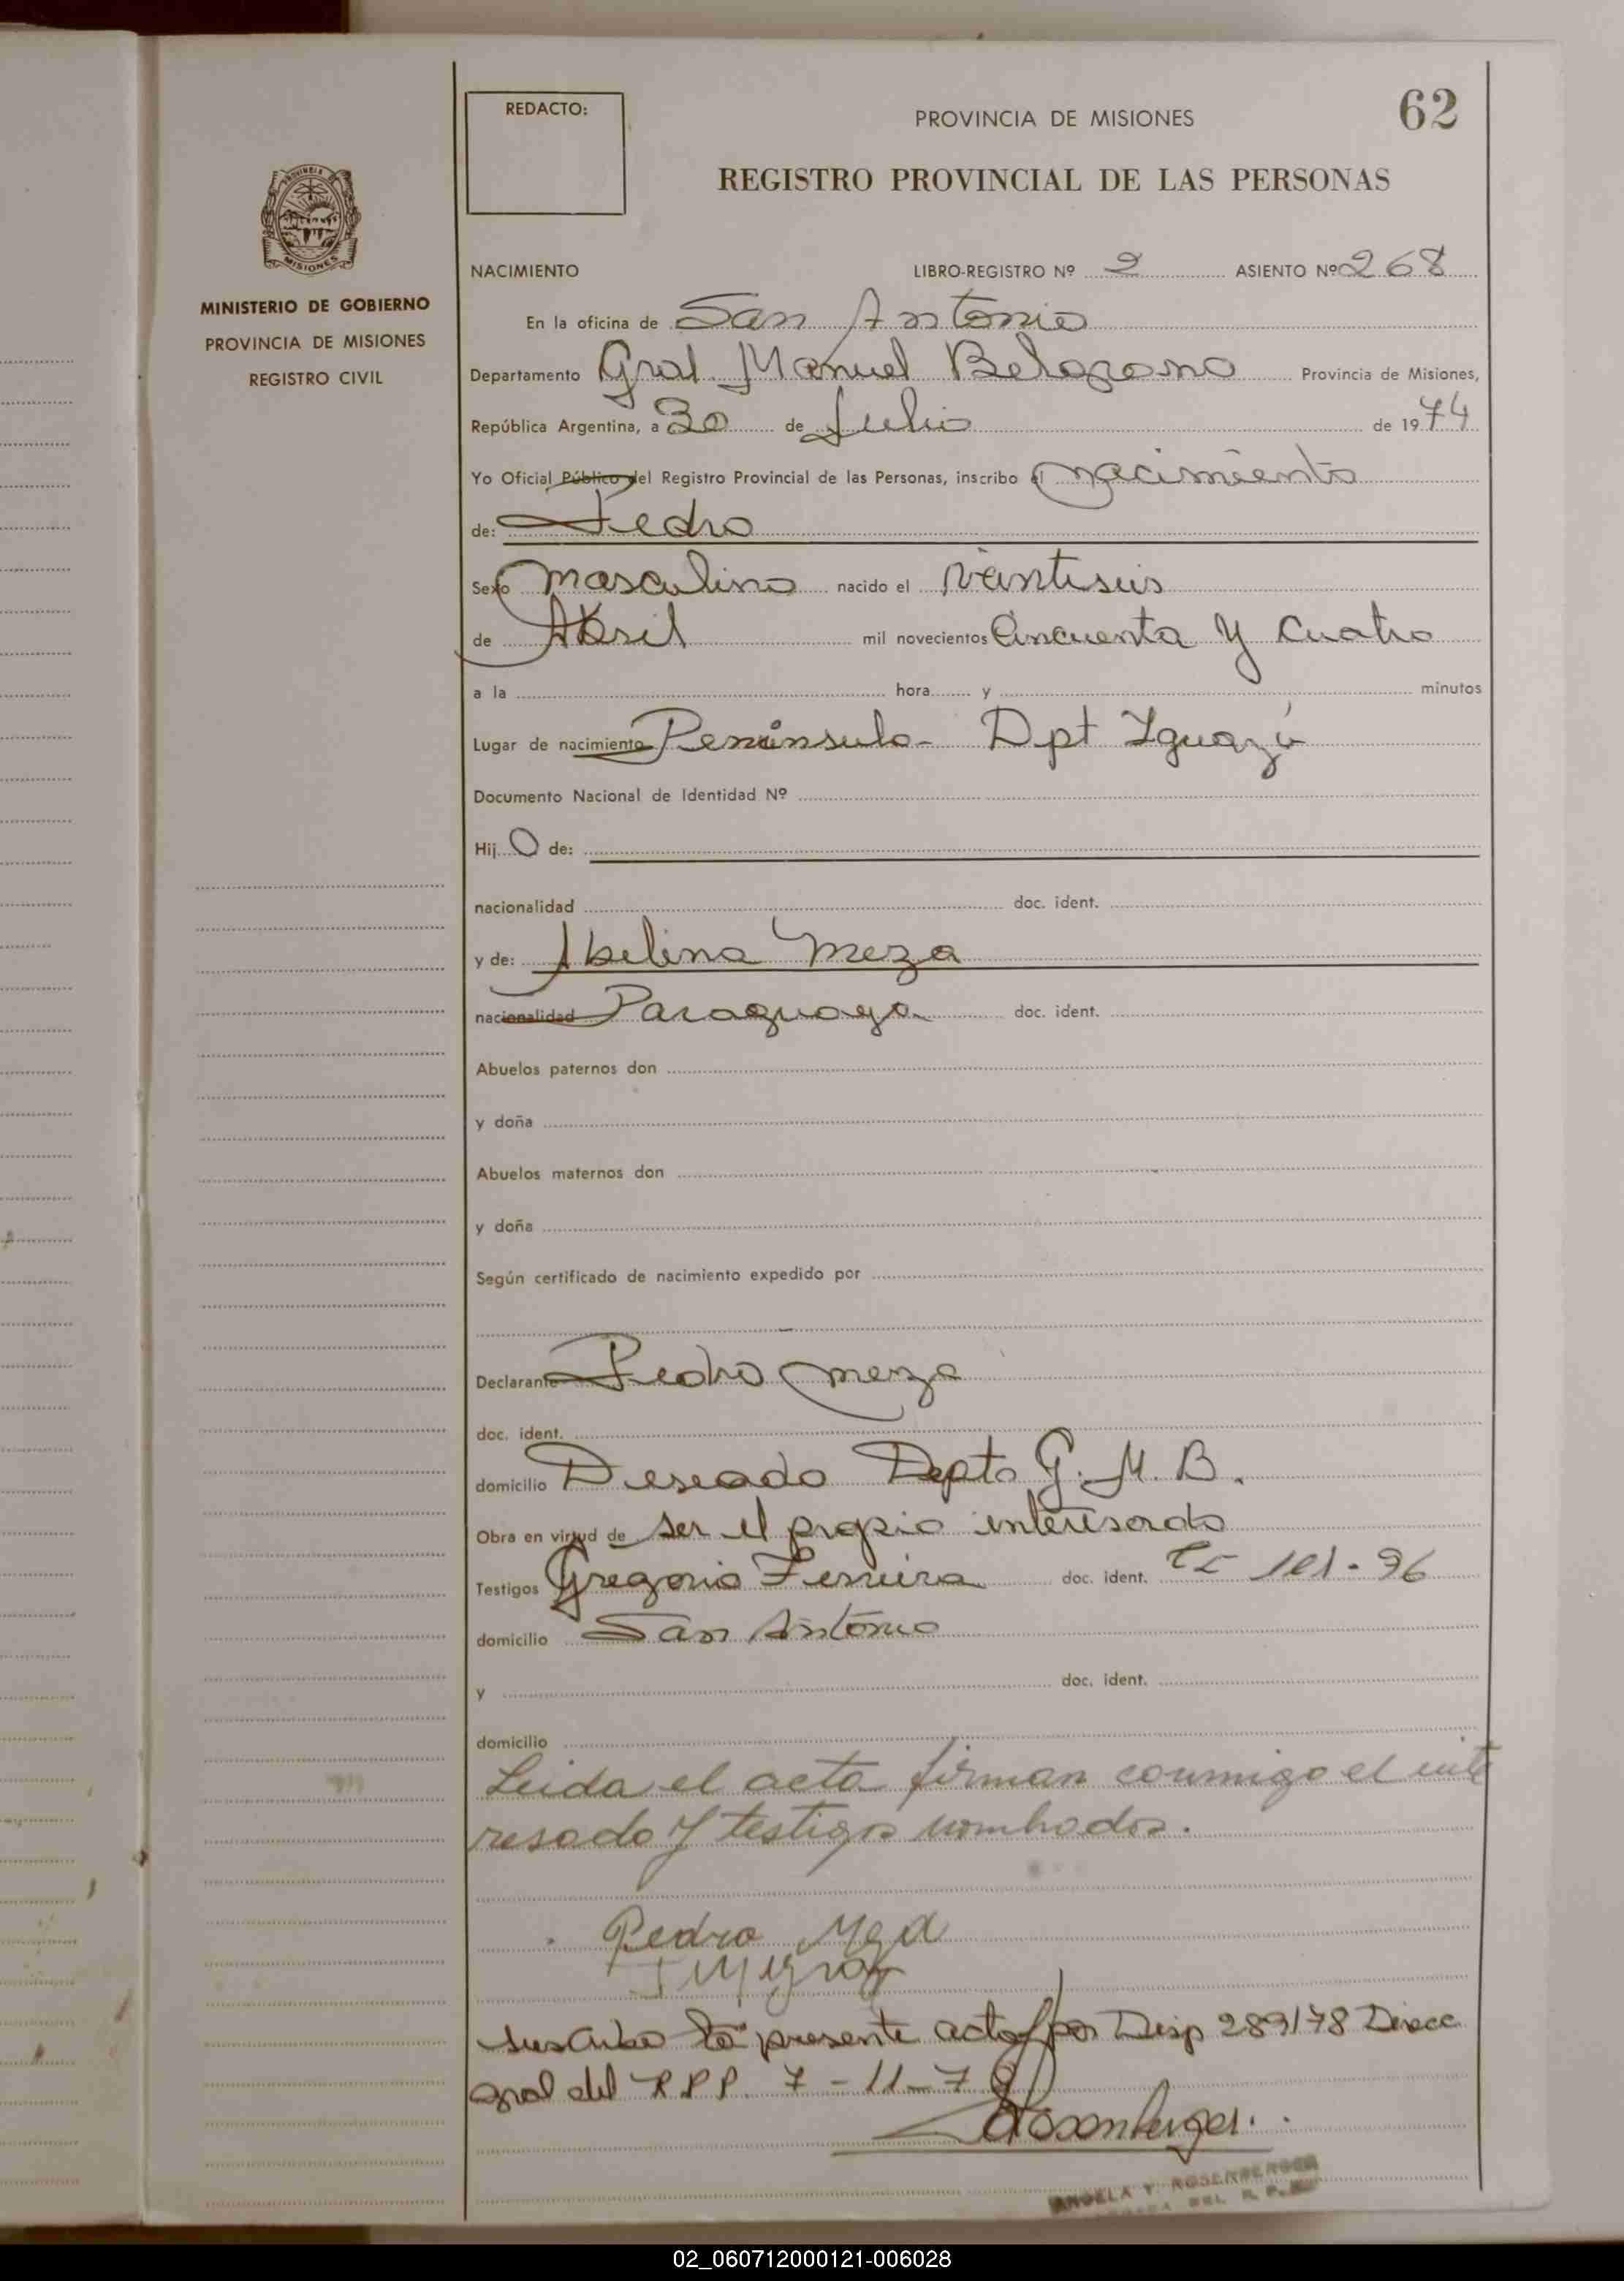 62
REDACTO:
PROVINCIA DE MISIONES
REGISTRO PROVINCIAL DE LAS PERSONAS
PROVINCIA DE
MISIONES
MINISTERIO DE GOBIERNO
PROVINCIA DE MISIONES
REGISTRO CIVIL
NACIMIENTO LIBRO-REGISTRO Nº 2 ASIENTO Nº 268
En la oficina de San Antonio
Departamento Gral. Manuel Belgrano Provincia de Misiones,
República Argentina, a 30 de Julio de 1974
Yo Oficial Público del Registro Provincial de las Personas, inscribo el nacimiento
de: Pedro
Sexo masculino nacido el veintiseis
de Abril mil novecientos Cincuenta y Cuatro
a la hora y minutos
Lugar de nacimiento Peninsula - Dpt Iguazú
Documento Nacional de Identidad Nº
Hij O de:
nacionalidad doc. ident.
y de: Abelina meza
nacionalidad Paraguaya doc. ident.
Abuelos paternos don
y doña
Abuelos maternos don
y doña
Según certificado de nacimiento expedido por
Declarante Pedro meza
doc. ident.
domicilio Deseado Depto G. M. B.
Obra en virtud de ser el propio interesado
Testigos Gregorio Ferreira doc. ident. 101-96
domicilio San Antonio
y doc. ident.
domicilio
Leida el acta firman conmigo el inte
resado y testigo nombados.
Pedro
suscribo la presente acta por Disp 289/78 Direcc
gral del R.P.P. 7-11-78
Rosenberger
ANGELA Y. ROSENBERGER
DEL R. P. P.
02_060712000121-006028